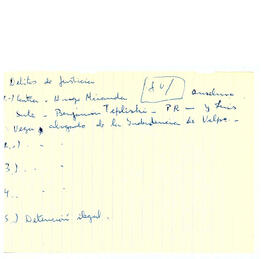 Delitos de Justicia
1.-) Contra - Hugo Miranda
Anselmo
Sule - Benjamin Teplisky - PR - y Luis
Vega abogado de la Intendencia de Valpo.-
2.-) - -
3.) - -
4.. -
5.) Detención ilegal.